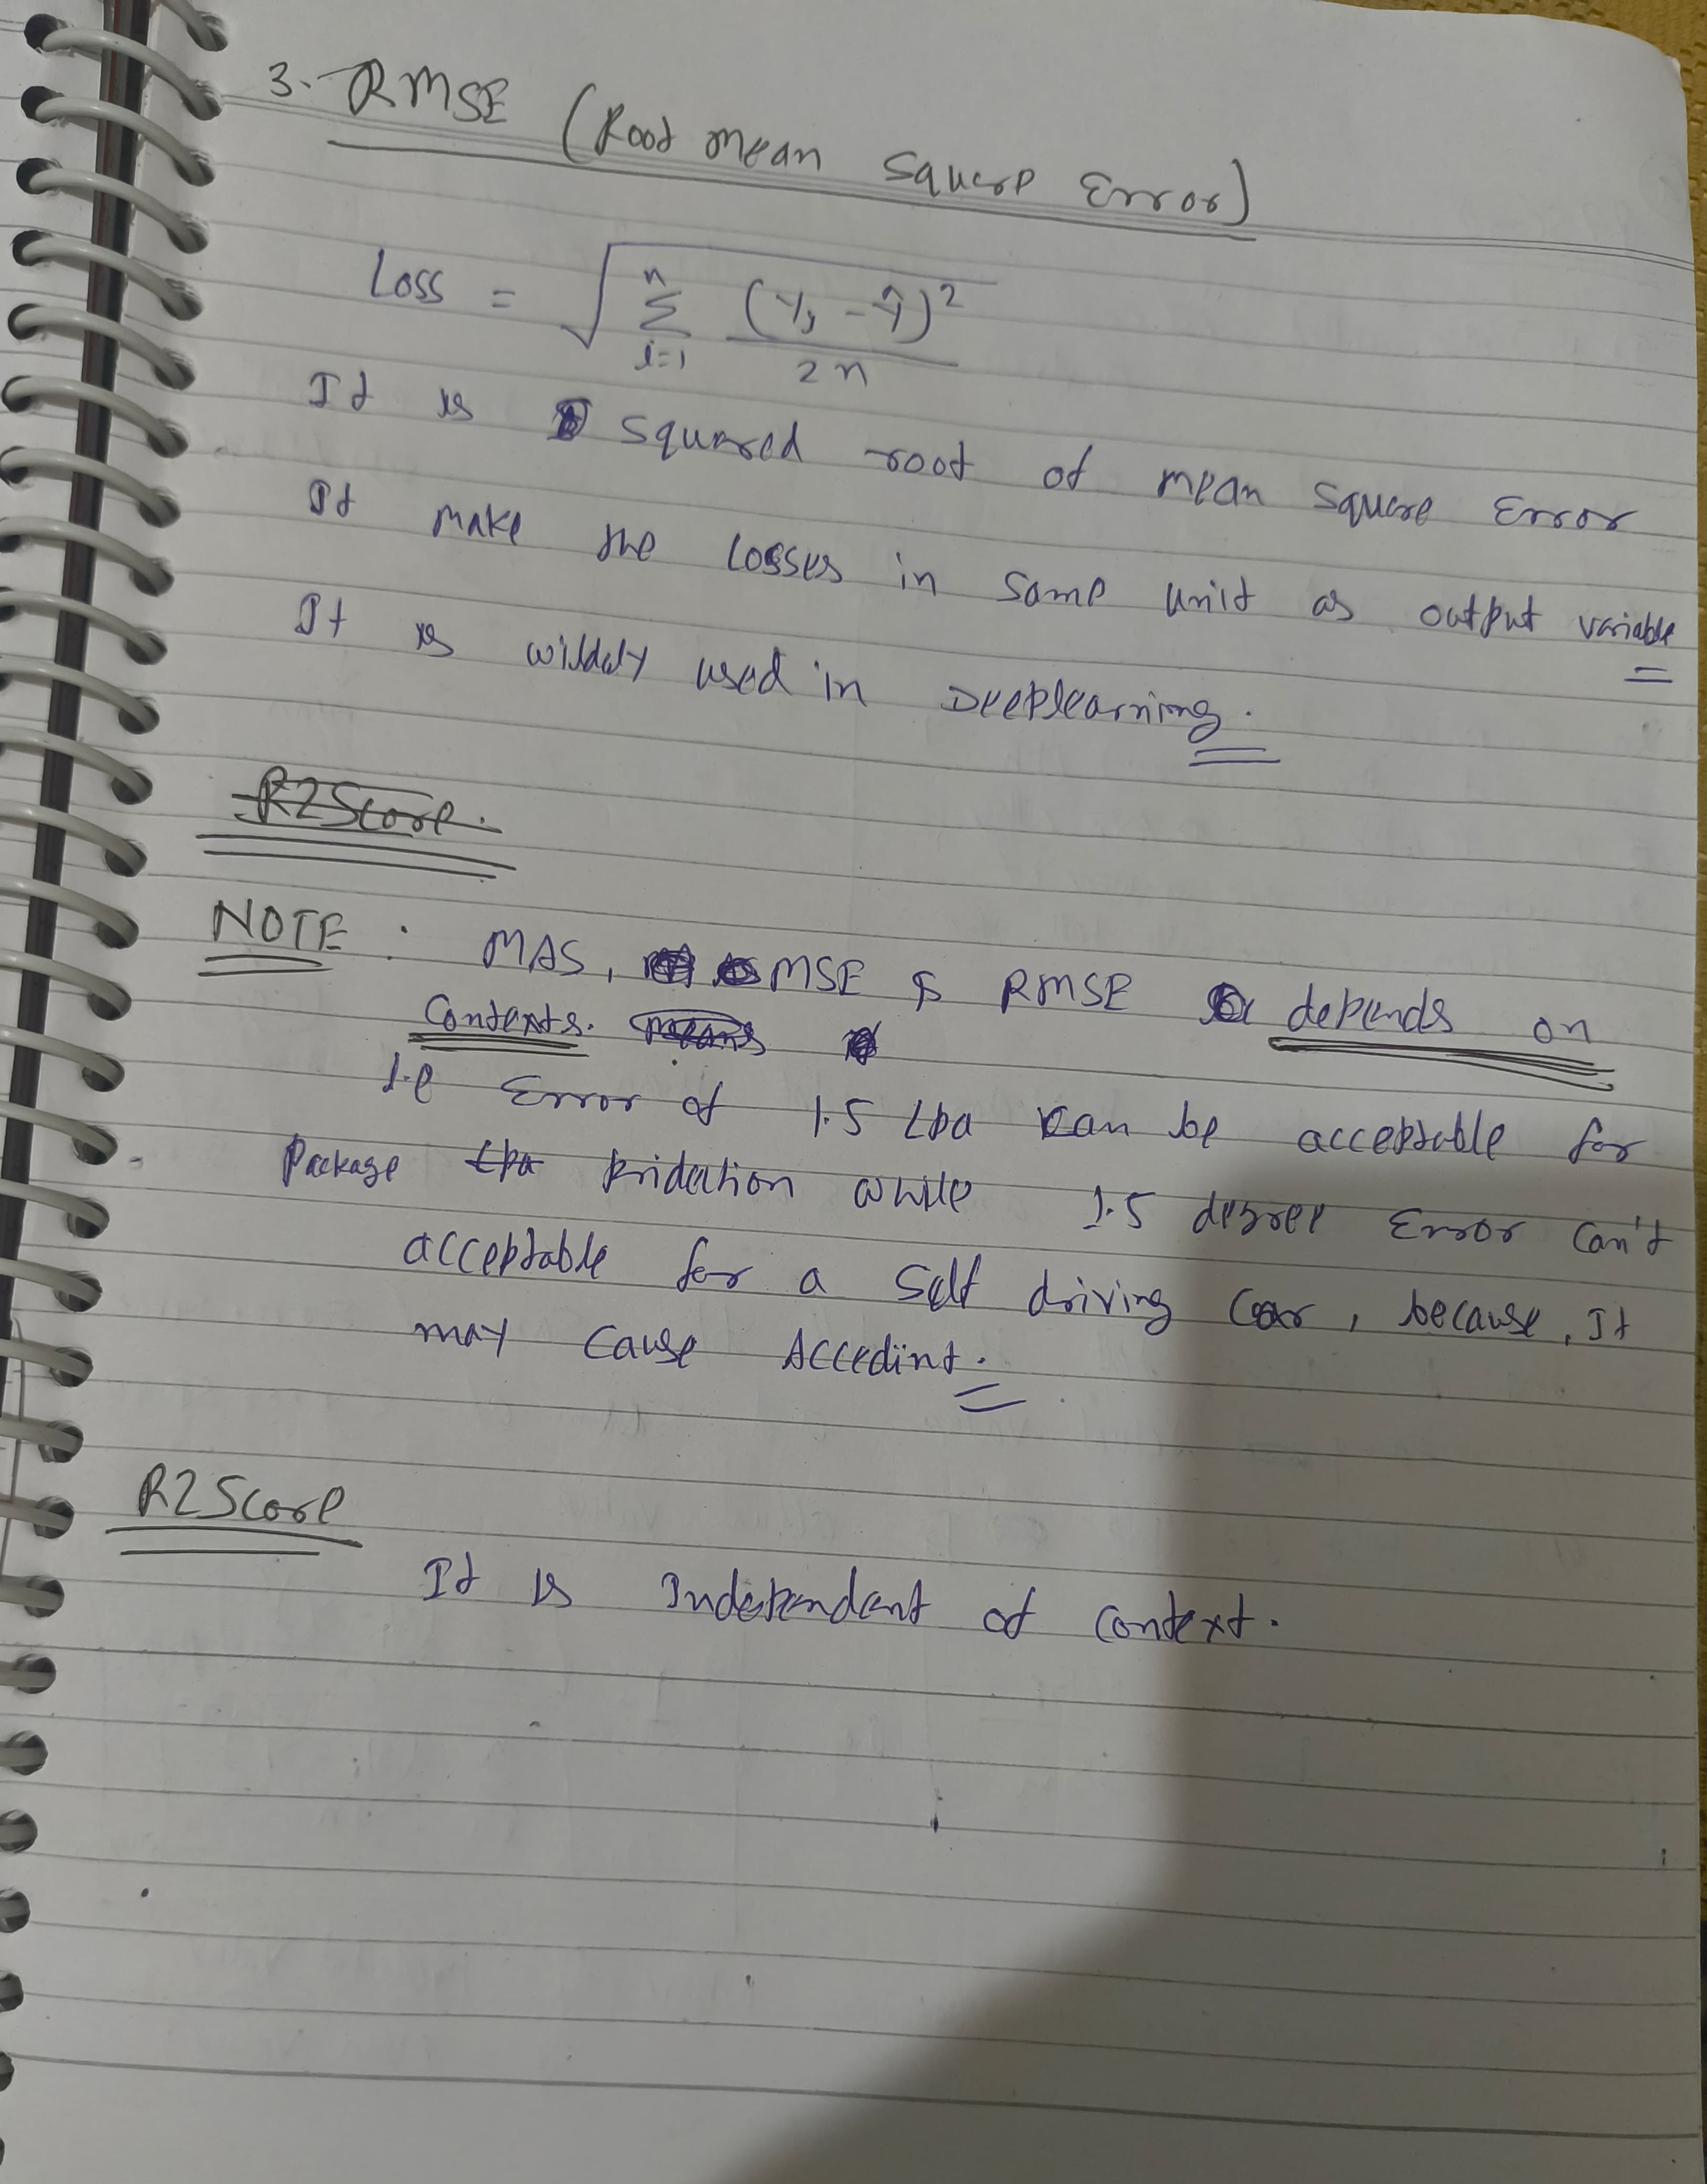 3. RMSE (Root mean square Error)
Loss = √ n Σ i=1 (yi - ŷ)² / 2n
It is squared root of mean square Error
It make the losses in same unit as output variable
It is wildely used in Deeplearning.
R2Score.
NOTE : MAS, MSE & RMSE depends on
Contexts. means
i.e Error of 1.5 Lpa can be acceptable for
Package Lpa pridiction while 1.5 degree Error can't
acceptable for a self driving car, because, It
may cause Accedint.
R2Score
It is Independant of context.